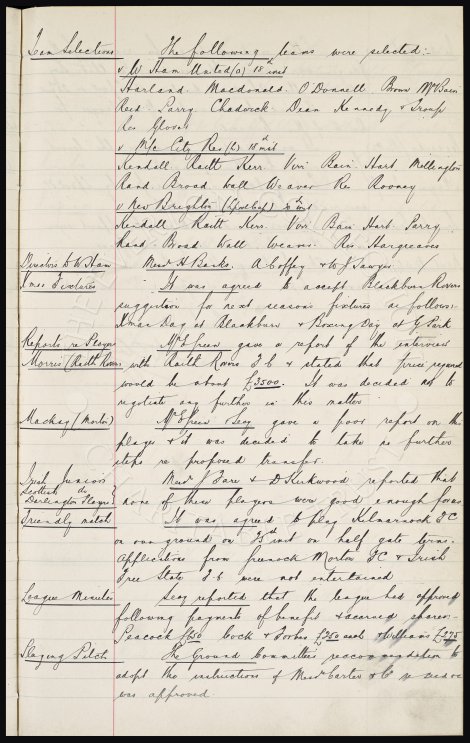 Team Selections The following teams were selected:-
v W. Ham United (a) 18th inst
Harland Macdonald O'Donnell Brown McBain
Reid Parry Chadwick Dean Kennedy & Troup
Res Glover
v M/c City Res (h) 18th inst
Kendall Raitt Kerr Virr Bain Hart Millington
Rand Broad Wall Weaver Res Rooney
v New Brighton (L'pool Cup) 20th inst
Kendall Raitt Kerr Virr Bain Hart Parry
Rand Broad Wall Weaver Res Hargreaves
Directors to W Ham Messrs H Banks. A Coffey & W J Sawyer
Xmas Fixtures It was agreed to accept Blackburn Rovers
suggestion for next seasons fixtures as follows:-
Xmas Day at Blackburn & Boxing Day at G. Park
Reports re Players Mr Green gave a report of the interview
Morris (Raith Rovers) with Raith Rovers F C & stated that price required
would be about £3500. It was decided not to
negotiate any further in this matter.
Mackay (Morton) Mr Green Secy gave a poor report on this
player & it was decided to take no further
steps re proposed transfer.
Irish Junior Messrs J Fare & D Kirkwood reported that
Scottish do
Darlington Player none of these players were good enough for us
Friendly match It was agreed to play Kilmarnock F C
on our ground on 25th inst on half gate terms.
Applications from Greenock Morton F C & Irish
Free State F C were not entertained
League Minutes Secy reported that the league had approved
following payments of benefit & accrued shares:-
Peacock £650 Cock & Forbes £350 each Williams £275
Playing Pitch The Ground Committee's reaccommendation to
adopt the instructions of Messrs Carter & Co re
was approved.